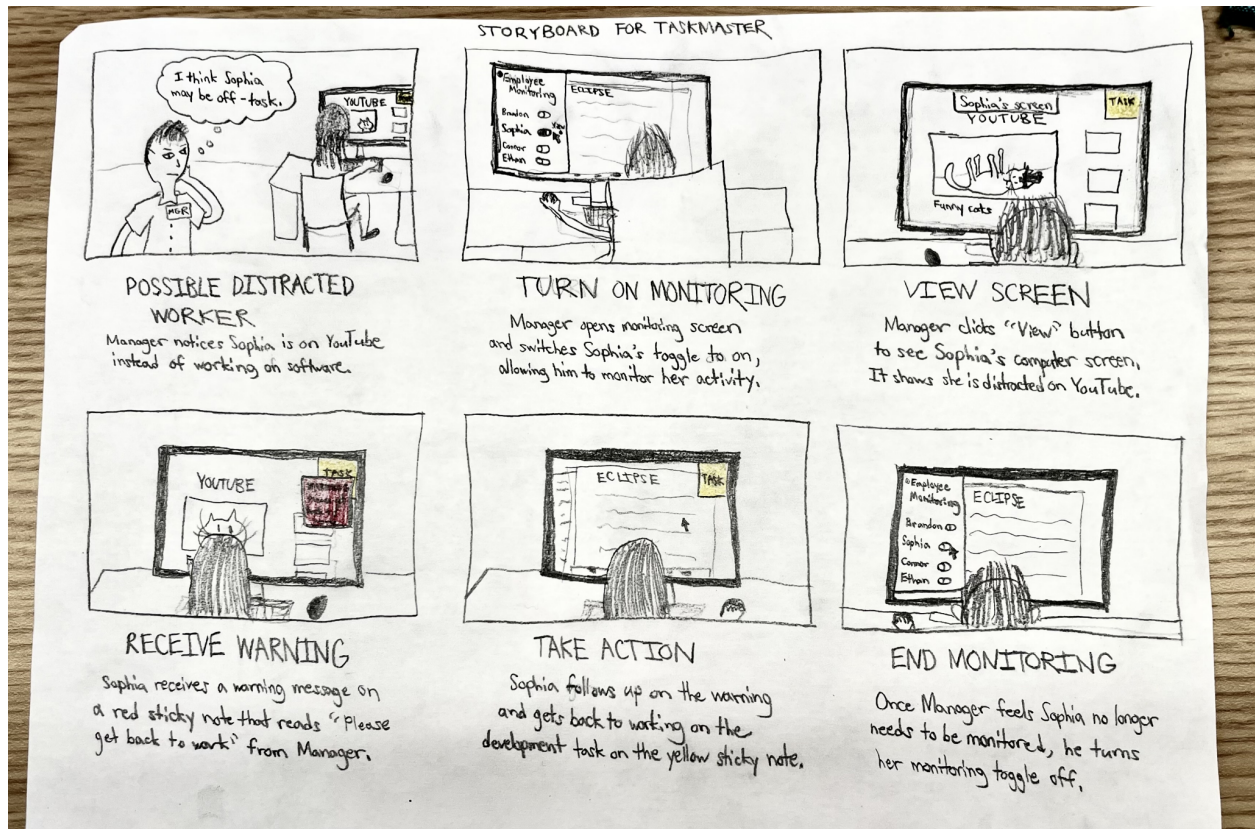 STORYBOARD FOR TASKMASTER
I think Sophia
may be off-task.
MGR
YOUTUBE
POSSIBLE DISTRACTED
WORKER
Manager notices Sophia is on YouTube
instead of working on software.
Employee
Monitoring
Brandon
Sophia
View
Connor
Ethan
ECLIPSE
TURN ON MONITORING
Manager opens monitoring screen
and switches Sophia's toggle to on,
allowing him to monitor her activity.
Sophia's screen
YOUTUBE
TASK
Funny cats
VIEW SCREEN
Manager clicks "View" button
to see Sophia's computer screen.
It shows she is distracted on YouTube.
YOUTUBE
TASK
RECEIVE WARNING
Sophia receives a warning message on
a red sticky note that reads "Please
get back to work" from Manager.
ECLIPSE
TASK
TAKE ACTION
Sophia follows up on the warning
and gets back to working on the
development task on the yellow sticky note.
Employee
Monitoring
Brandon
Sophia
Connor
Ethan
ECLIPSE
END MONITORING
Once Manager feels Sophia no longer
needs to be monitored, he turns
her monitoring toggle off.